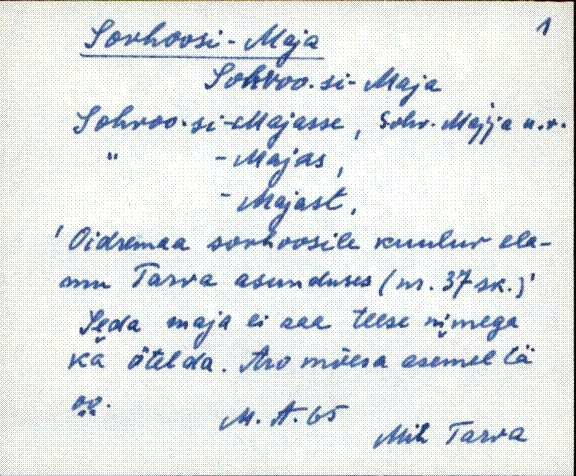 1
Sovhoosi-Maja
Sohvoo·si-Maja
Sohvoo·si-Majasse, Sohv. Majja u.v.
" -Majas,
-Majast,
'Oidremaa sovhoosile kuuluv ela-
mu Tarva asunduses (nr. 37 sk.)'
Seda maja ei saa teese nimega
kä ötelda. Aro mõesa asemel tä
oo.
M. A. 65
Mih Tarva